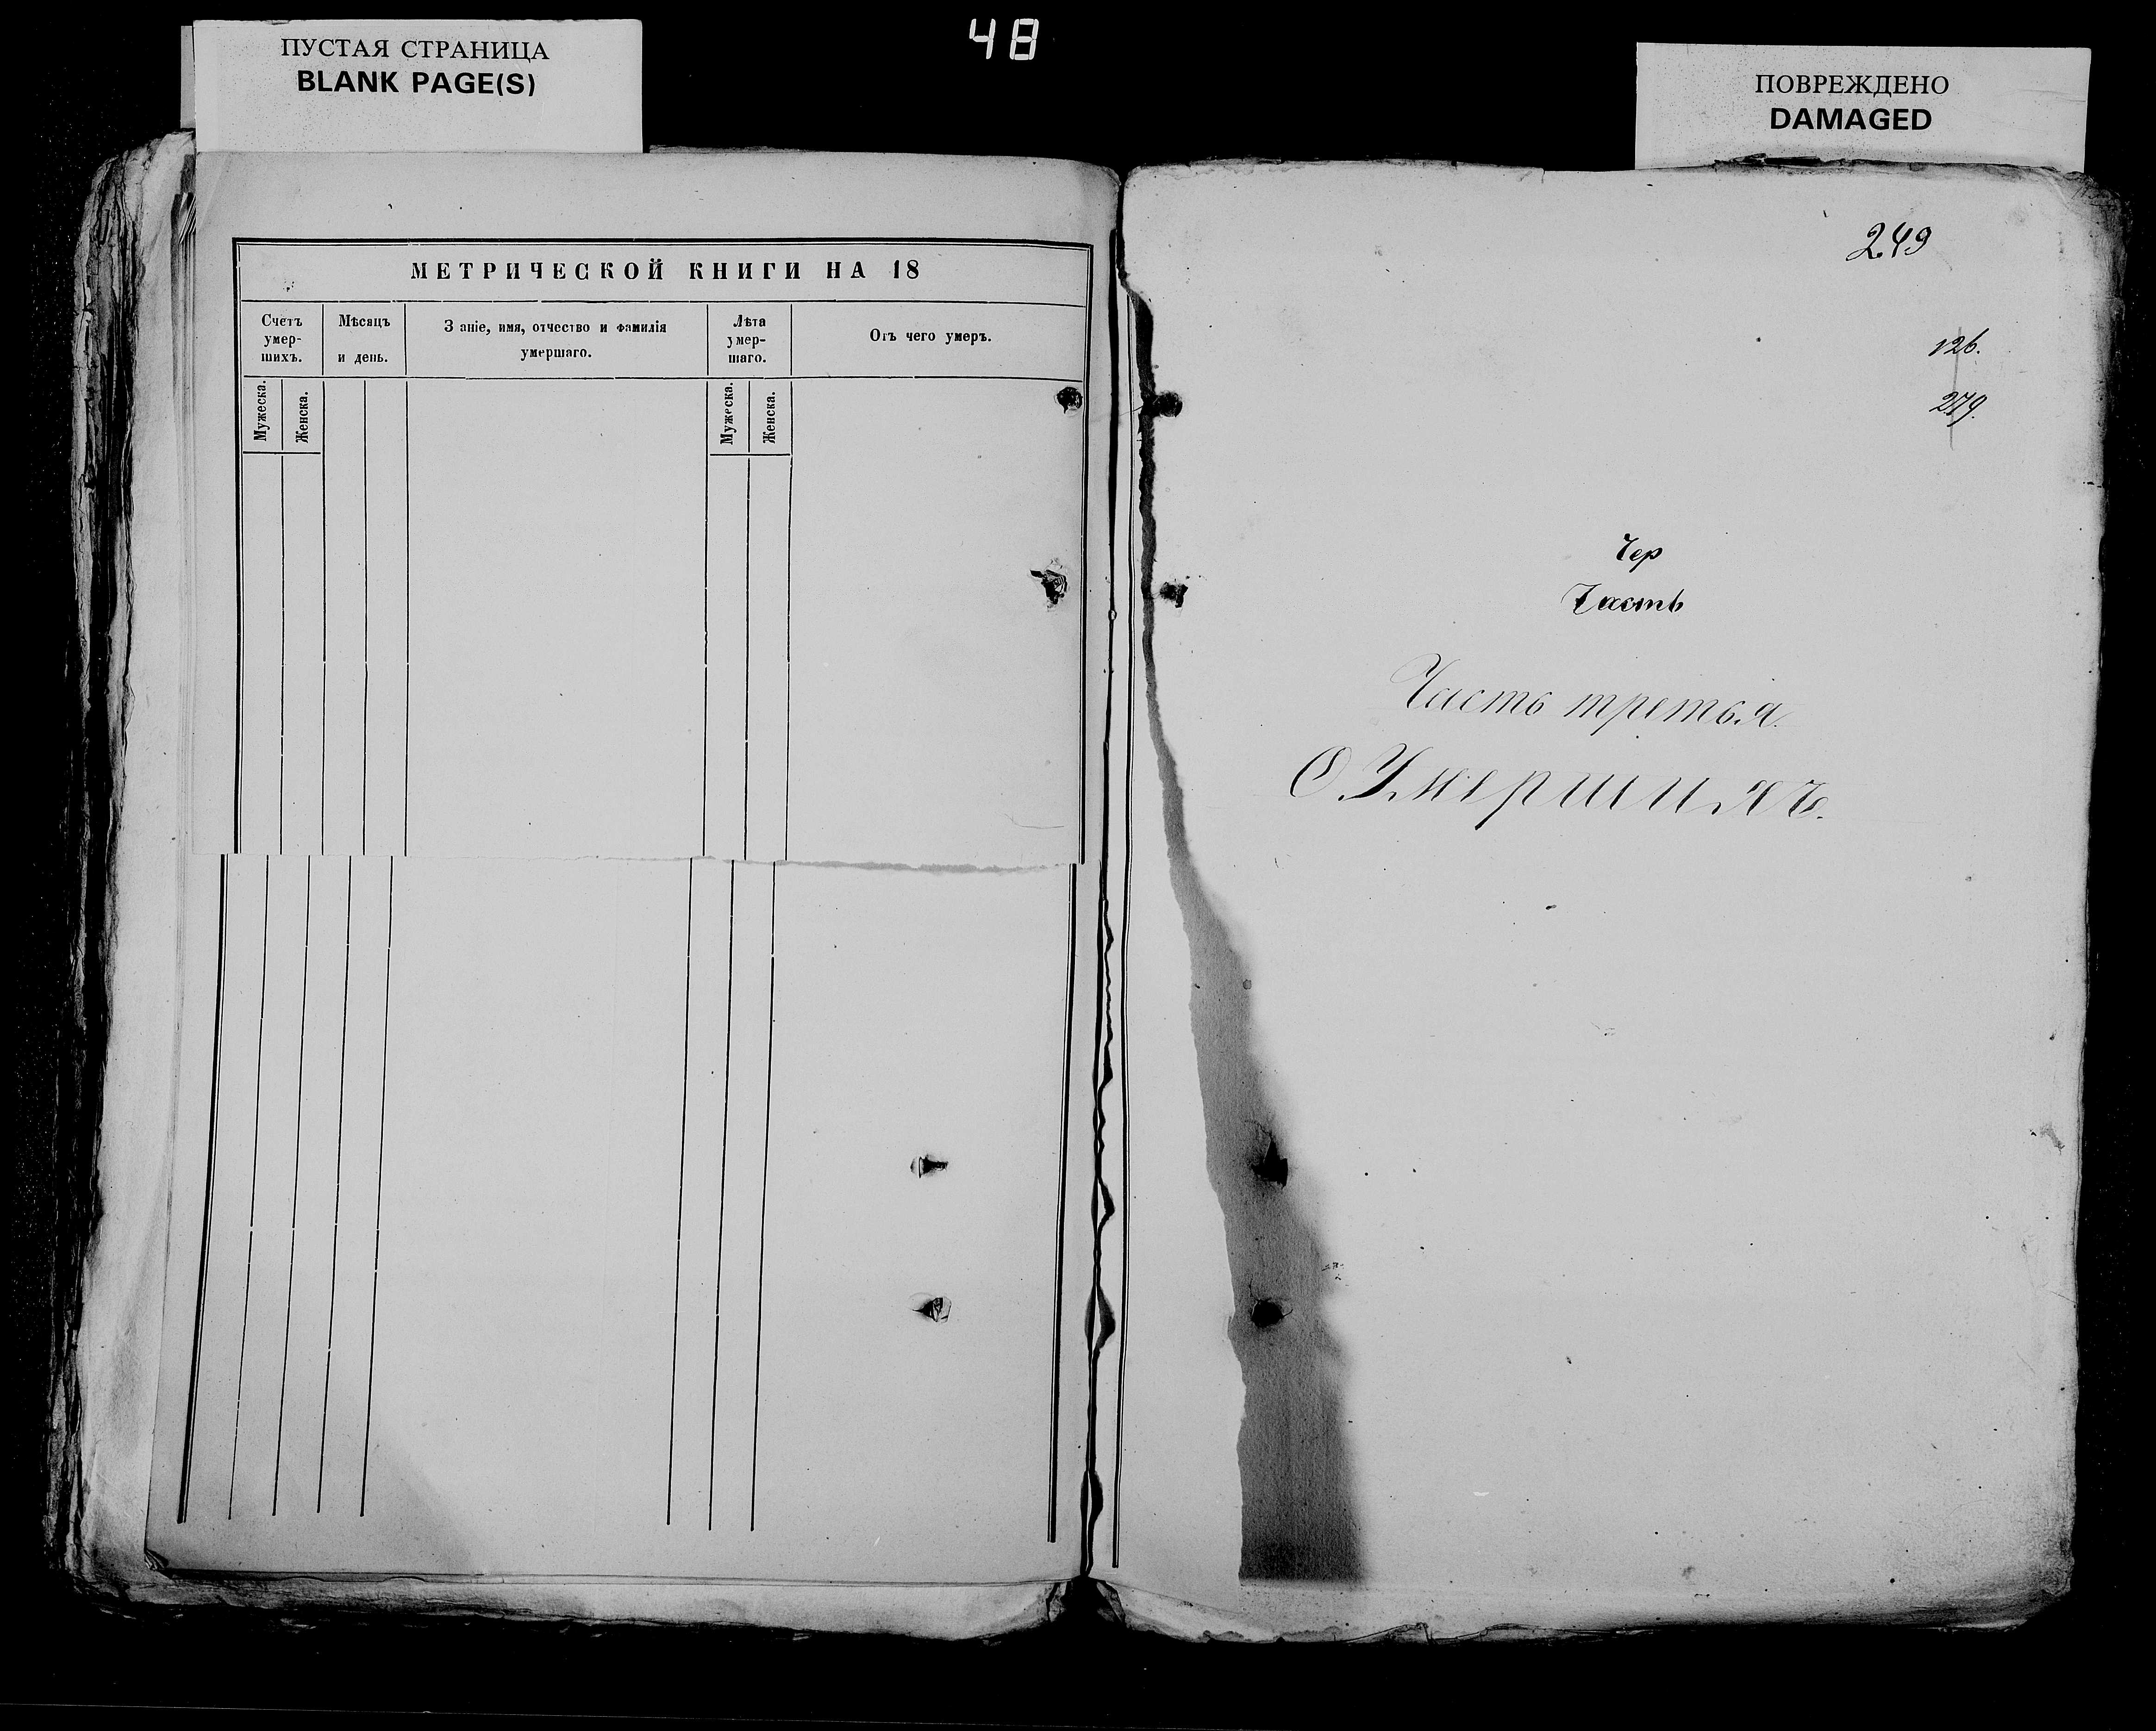 48
ПУСТАЯ СТРАНИЦА
BLANK PAGE(S)
МЕТРИЧЕСКОЙ КНИГИ НА 18
Счетъ
умер-
шихъ.
Мѣсяцъ
и день.
З аніе, имя, отчество и фамилія
умершаго.
Лѣта
умер-
шаго.
Отъ чего умеръ.
Мужеска.
Женска.
Мужеска.
Женска.
ПОВРЕЖДЕНО
DAMAGED
249
126.
279.
Чер
Часть
Часть третья.
О Умершихъ.